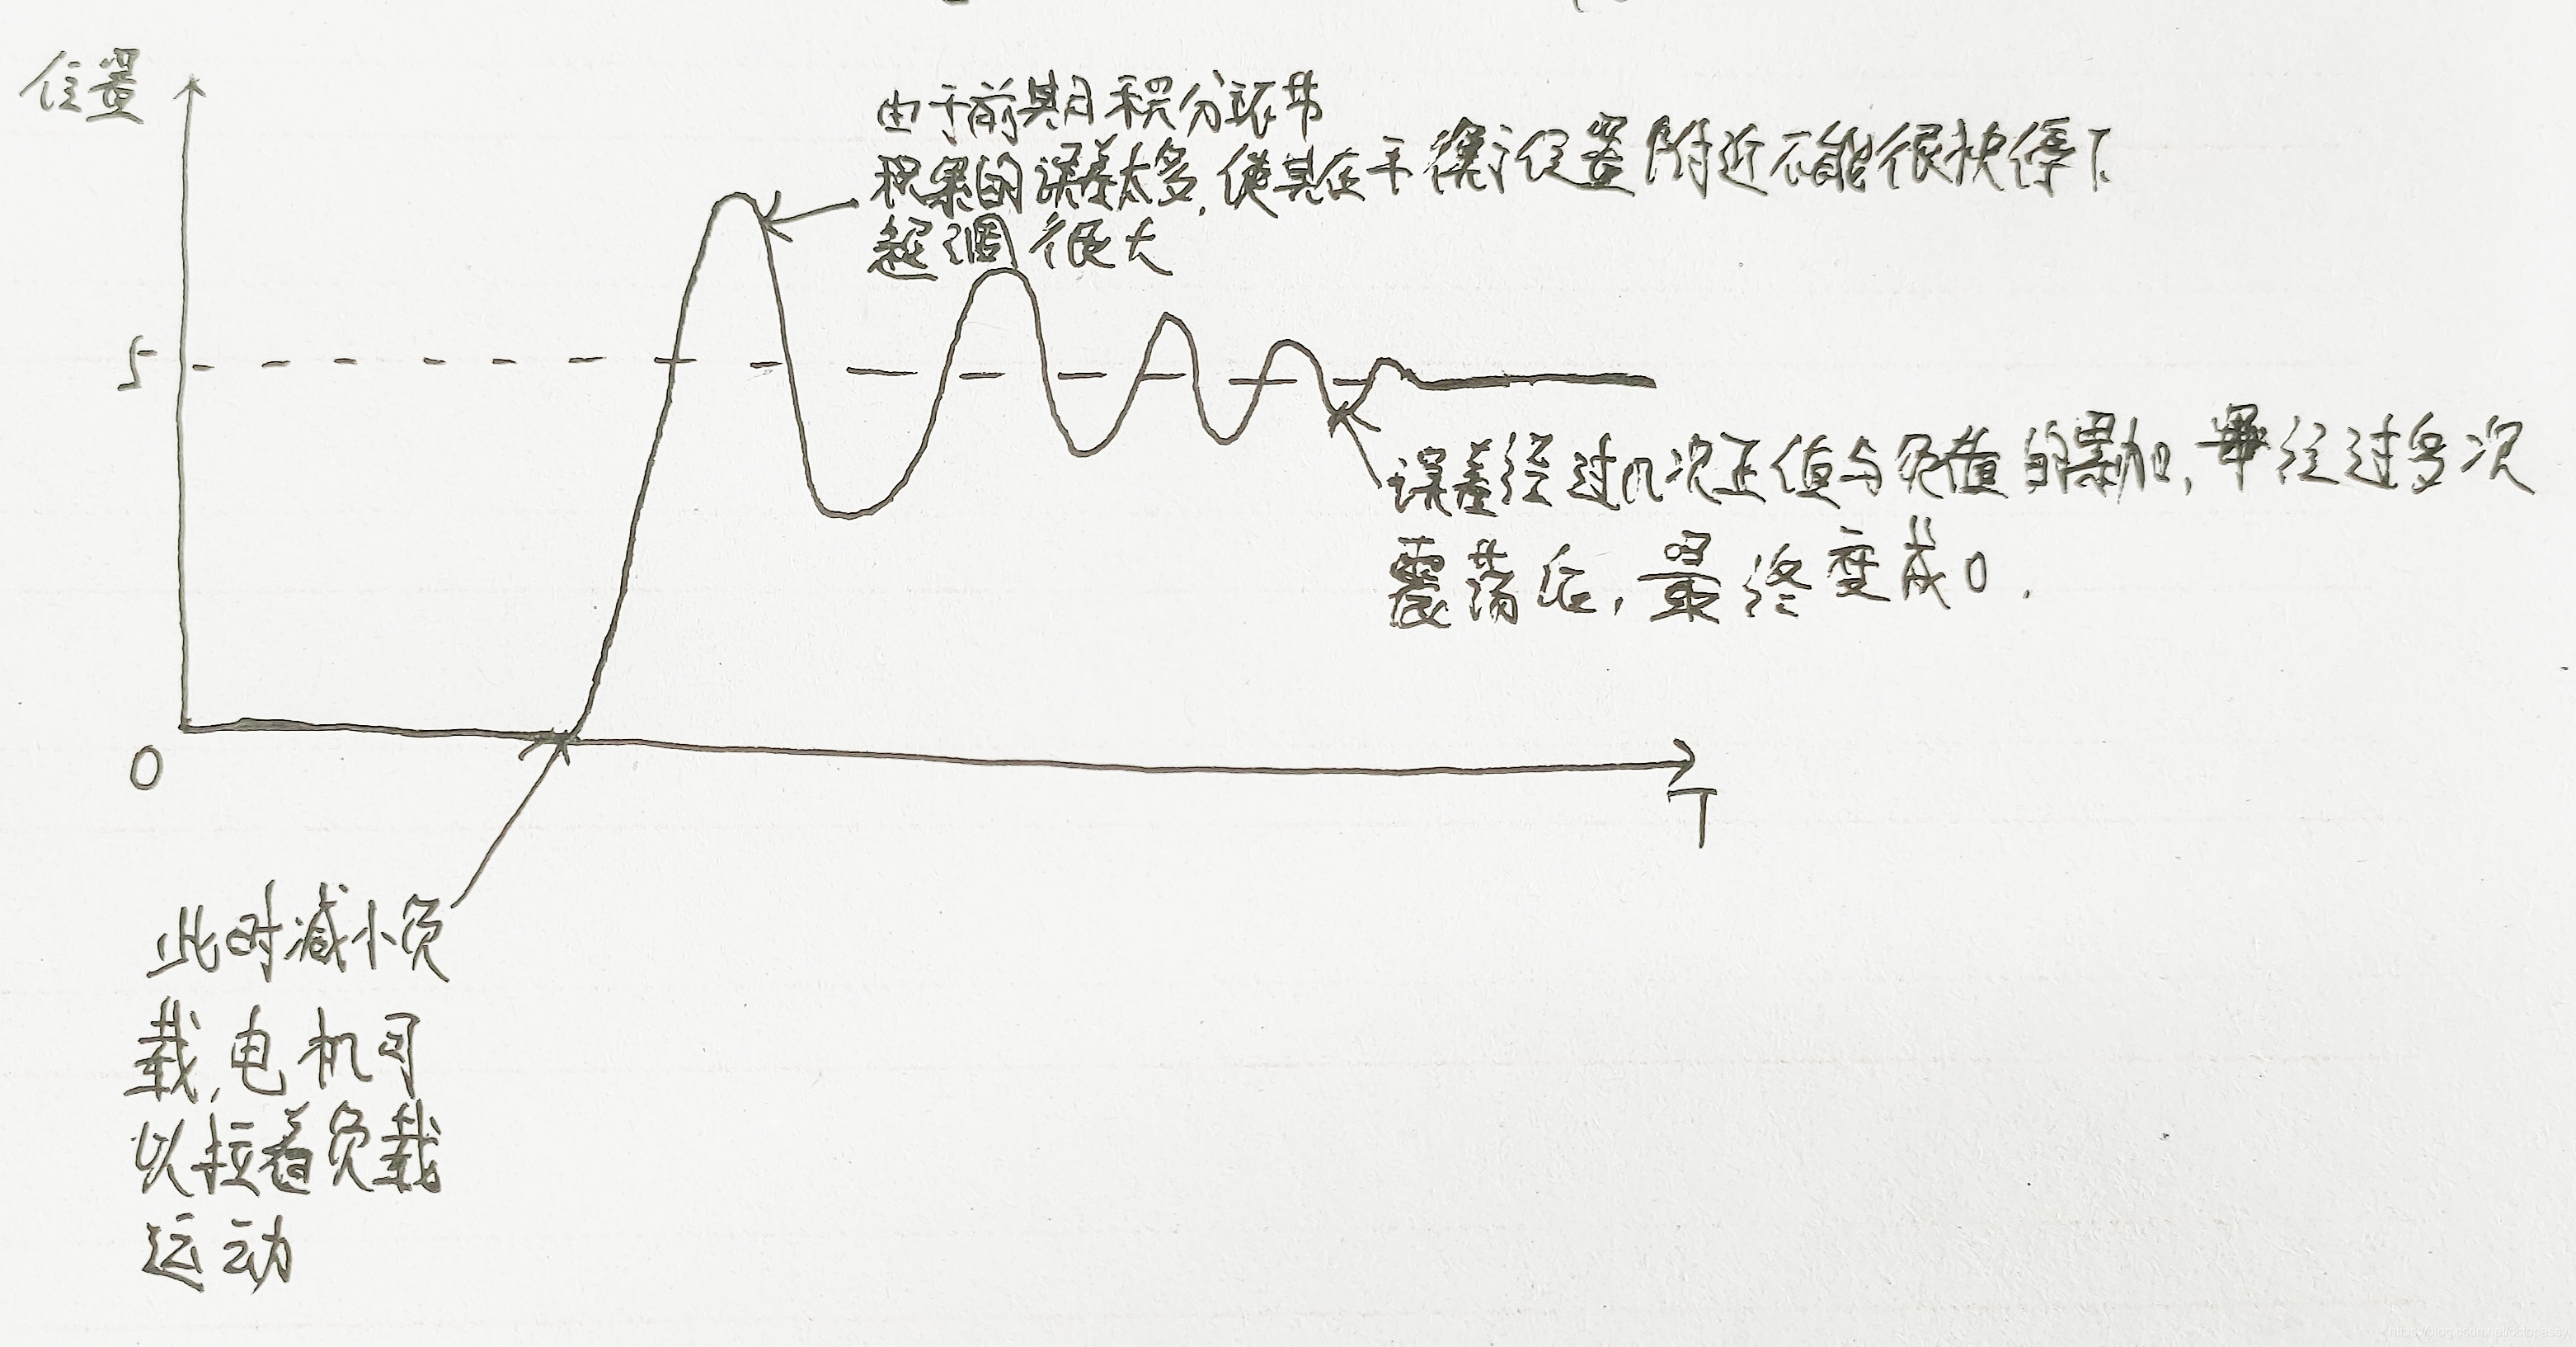 位置
由于前期积分环节
积累的误差太多,使其在平衡位置附近不能很快停下
超调很大
5
误差经过几次正值与负值的累加,
经过多次
震荡后,最终变成0.
0
T
此时减小负
载,电机可
以拉着负载
运动
https://blog.csdn.net/octopassy